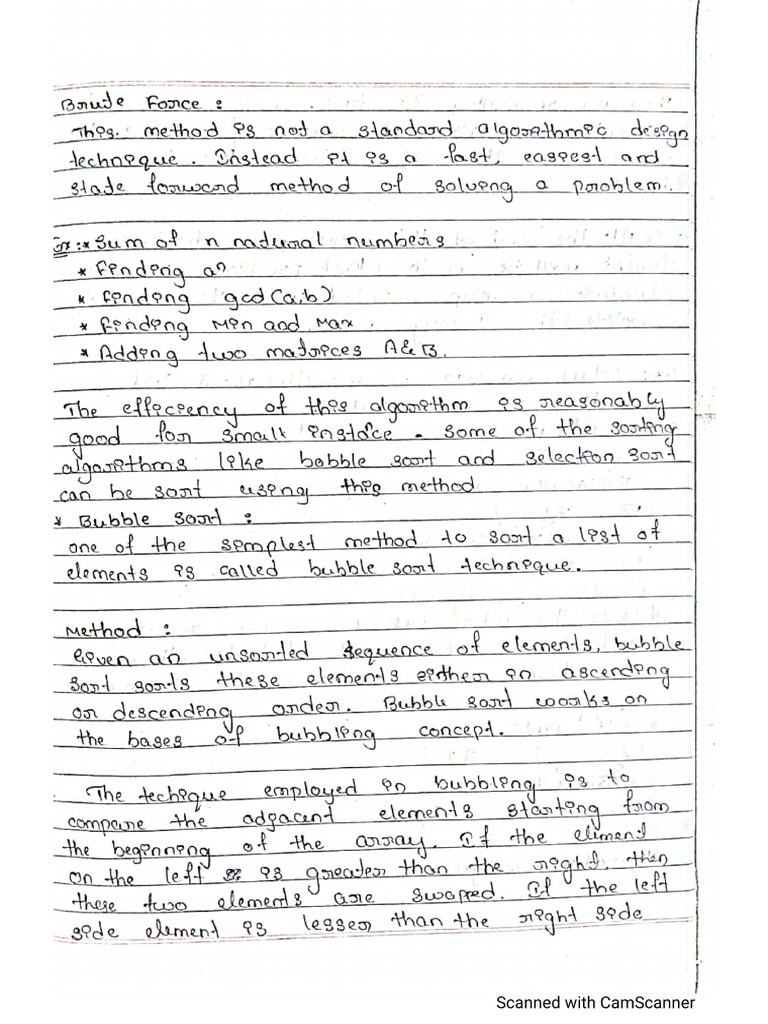 Brute Force :
This. method is not a standard algorithmic design
technique. Instead it is a fast, easiest and
state forward method of solving a problem.
Ex:* Sum of n natural numbers
* Finding aⁿ
* Finding gcd(a,b)
* Finding Min and Max.
* Adding two matrices A&B.
The efficiency of this algorithm is reasonably
good for small instace. Some of the sorting
algorithms like bobble sort and selection sort
can be sort using this method
* Bubble sort :
one of the simplest method to sort a list of
elements is called bubble sort technique.
Method :
Given an unsorted sequence of elements, bubble
sort sorts these elements either in ascending
or descending order. Bubble sort works on
the bases of bubbling concept.
The techique employed in bubbling is to
compare the adjacent elements starting from
the beginning of the array. If the eliment
on the left is greater than the right. then
these two elements are swaped. If the left
side element is lesser than the right side
Scanned with CamScanner